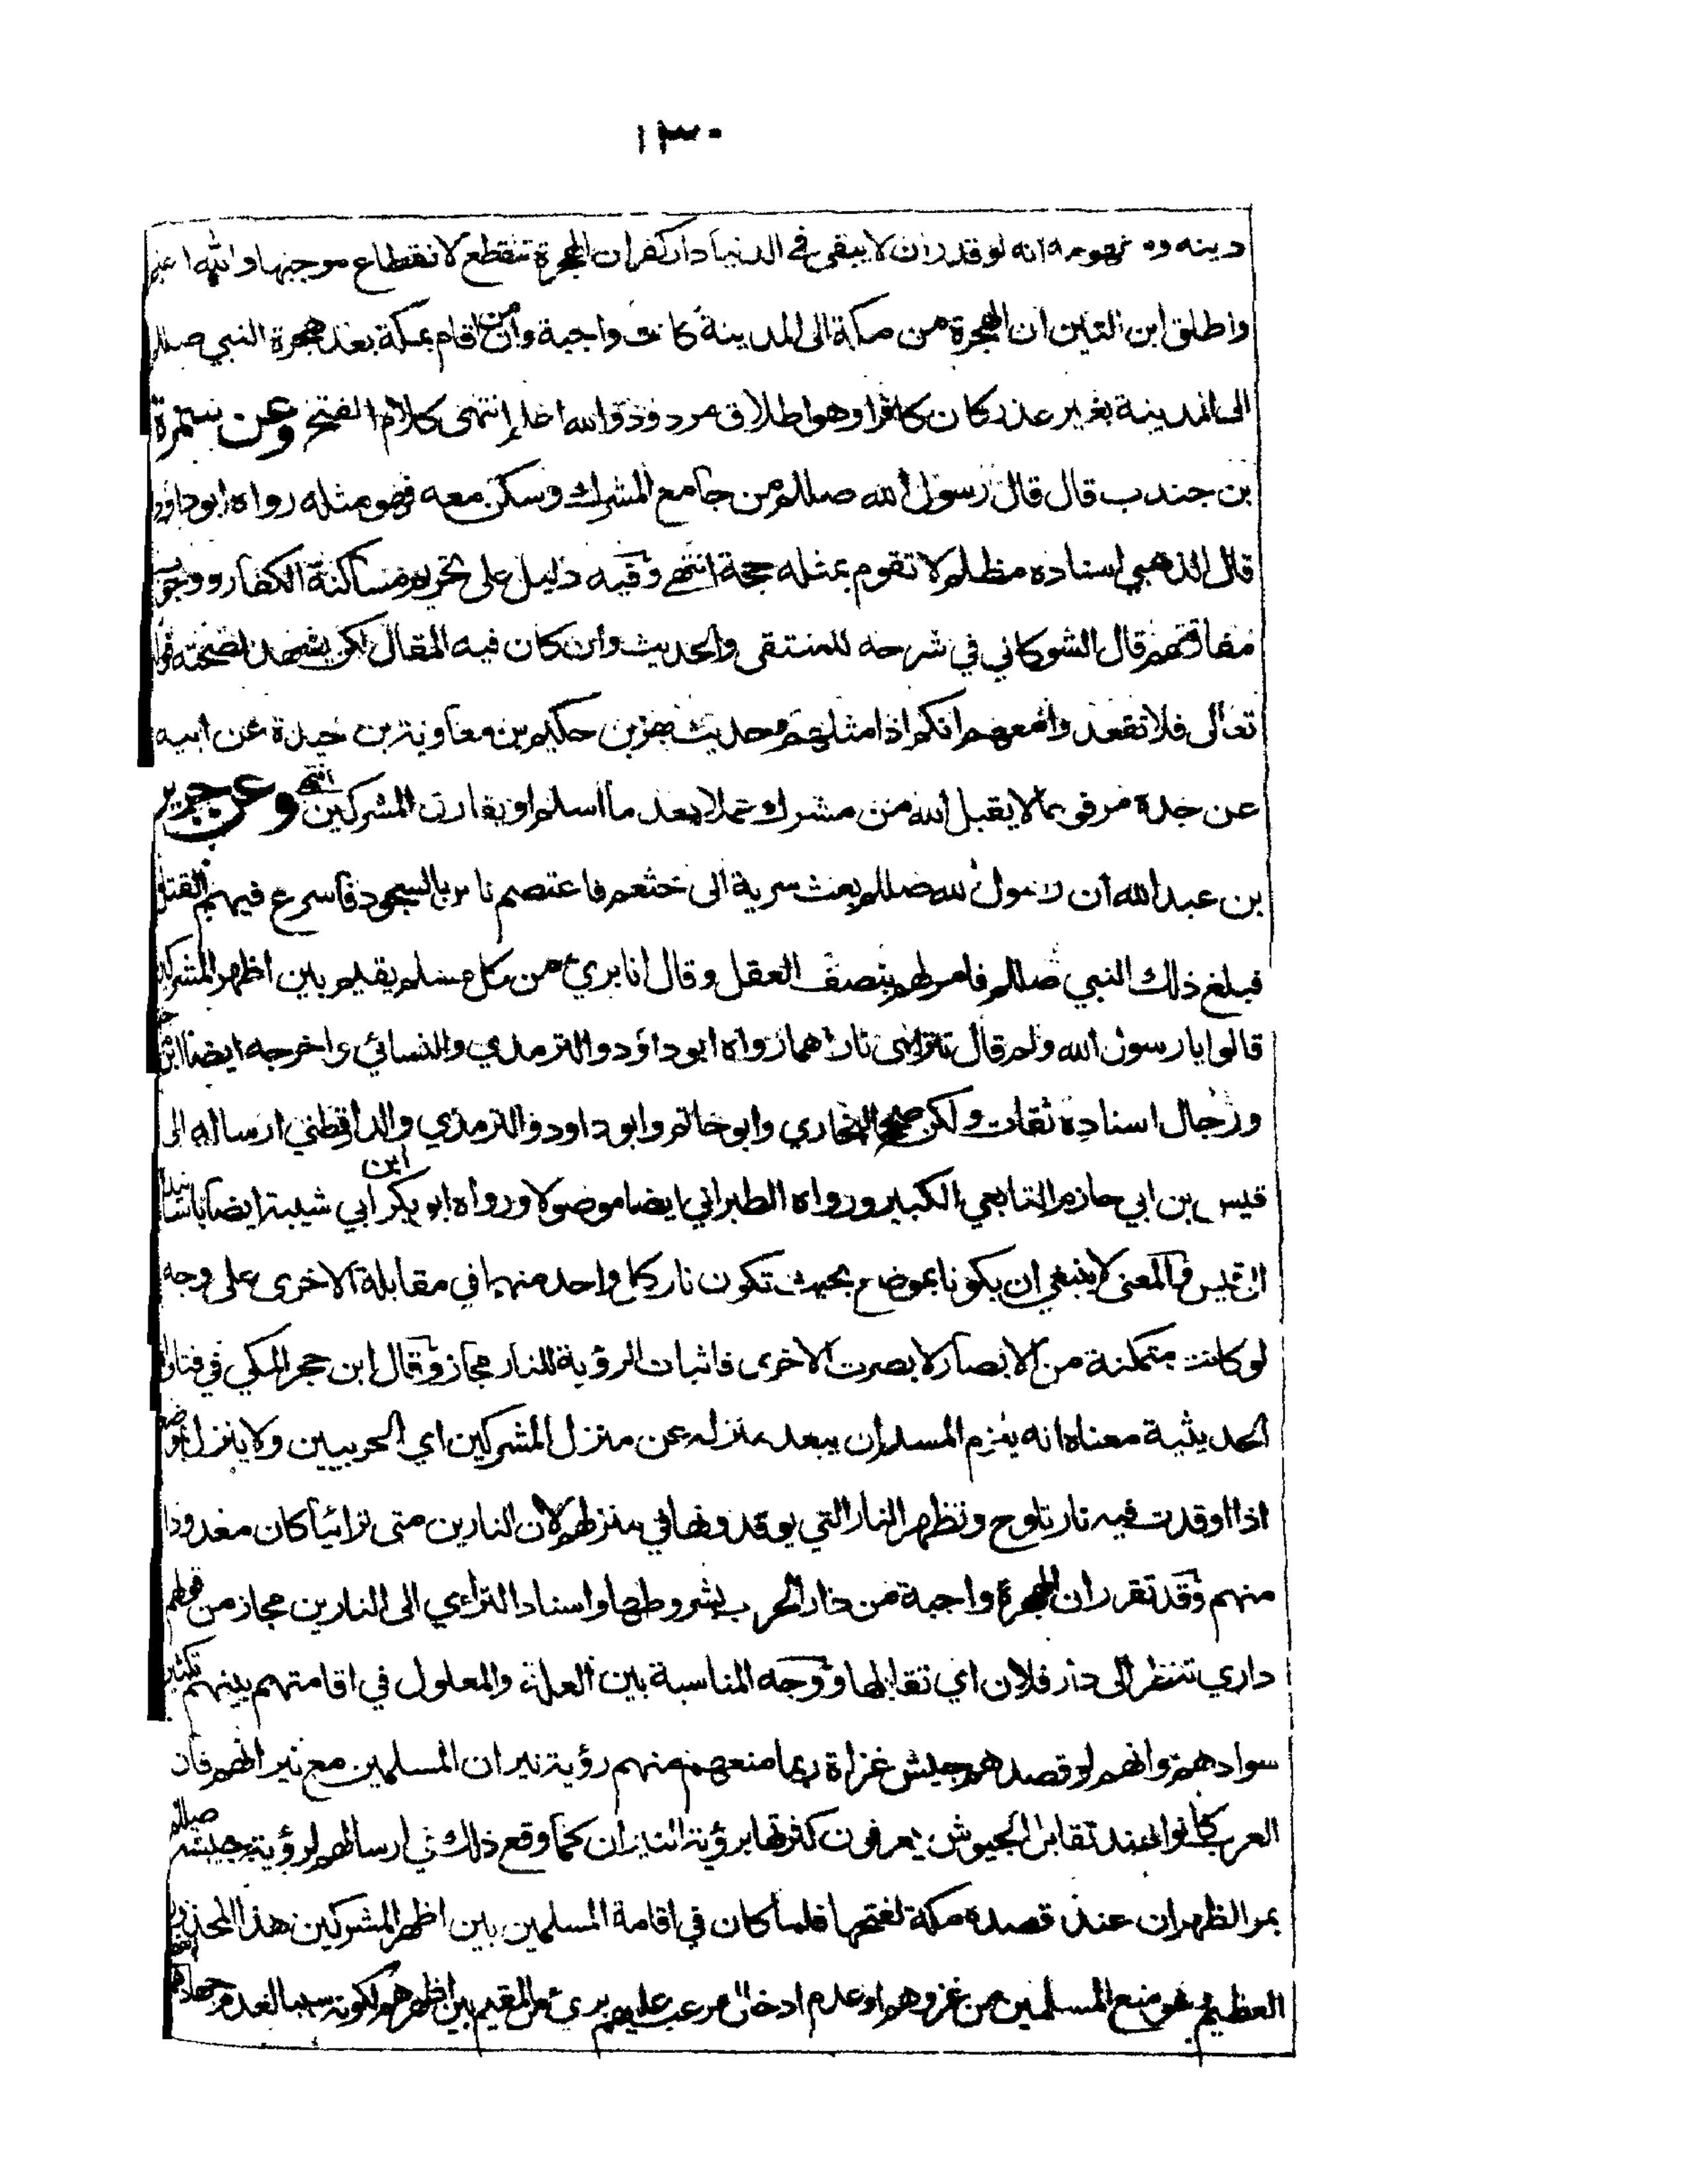 ١٣٠
دينه ومفهومه انه لو قدر ان لا يبقى في الدنيا دار كفر ان الهجرة تنقطع لانقطاع موجبها والله اعلم
واطلق ابن التين ان الهجرة من مكة الى المدينة كانت واجبة وان من اقام بمكة بعد هجرة النبي صللم
الى المدينة بغير عذر كان كافرا وهو اطلاق مردود والله اعلم انتهى كلام الفتح وعن سمرة
بن جندب قال قال رسول الله صللم من جامع المشرك وسكن معه فهو مثله رواه ابوداود
قال الذهبي اسناده مظلم لا تقوم بمثله حجة انتهى وفيه دليل على تحريم مساكنة الكفار ووجوب
مفارقتهم قال الشوكاني في شرحه للمنتقى والحديث وان كان فيه المقال لكن يشهد لصحته قوله
تعالى فلا تقعدوا معهم انكم اذا مثلهم وحديث بهز بن حكيم بن معاوية بن حيدة عن ابيه
عن جده مرفوعا لا يقبل الله من مشرك عملا بعد ما اسلم او يفارق المشركين انتهى وعن جرير
بن عبد الله ان رسول الله صللم بعث سرية الى خثعم فاعتصم ناس بالسجود فاسرع فيهم القتل
فبلغ ذلك النبي صللم فامر لهم بنصف العقل وقال انا بريء من كل مسلم يقيم بين اظهر المشركين
قالوا يا رسول الله ولم قال لا تراءى ناراهما رواه ابو داؤد والترمذي والنسائي واخرجه ايضا ابن ماجه
ورجال اسناده ثقات ولكن صحح البخاري وابو حاتم وابو داود والترمذي والدارقطني ارساله الى
قيس بن ابي حازم التابعي الكبير ورواه الطبراني ايضا موصولا ورواه ابو بكر ابن ابي شيبة ايضا باسناد
ابن قيس والمعنى لا ينبغي ان يكونا بموضع بحيث تكون نار كل واحد منهما في مقابلة الاخرى على وجه
لو كانت متمكنة من الابصار لابصرت الاخرى فاثبات الرؤية للنار مجاز وقال ابن حجر المكي في فتاواه
الحديثية معناه انه يلزم المسلم ان يبعد منزله عن منزل المشركين اي الحربيين ولا ينزل بموضع
اذا اوقدت فيه نار تلوح وتظهر النار التي يوقدونها في منزلهم لان النارين متى تراءيا كان معدودا
منهم وقد تقرر ان الهجرة واجبة من دار الحرب بشروطها واسناد التراءي الى النارين مجاز من قولهم
داري تنظر الى دار فلان اي تقابلها ووجه المناسبة بين العلة والمعلول في اقامتهم بينهم تكثير
سوادهم وانهم لو قصدهم جيش غزاة ربما منعهم منهم رؤية نيران المسلمين مع نيرانهم فان
العرب كانوا عند تقابل الجيوش يعرفون كثرتها برؤية النيران كما وقع ذلك في ارسالهم لرؤية جيشه صللم
بمر الظهران عند قصده مكة لفتحها فلما كان في اقامة المسلمين بين اظهر المشركين هذا المحذور
العظيم هو منع المسلمين من غزوهم او عدم ادخال رعب عليهم بريء من المقيم بين اظهرهم لكونه سببا لعدم جهادهم